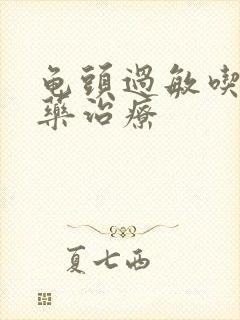 龟頭過敏喫
藥治療
夏七西